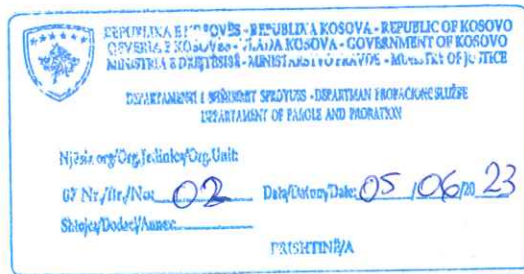 REPUBLIKA E KOSOVËS - REPUBLIKA KOSOVA - REPUBLIC OF KOSOVO
QEVERIA E KOSOVËS - VLADA KOSOVA - GOVERNMENT OF KOSOVO
MINISTRIA E DREJTËSISË - MINISTARSTVO PRAVDE - MINISTRY OF JUSTICE
DEPARTAMENTI I SHËRBIMIT SPROVUES - DEPARTMAN PROBACIONE SLUŽBE
DEPARTAMENT OF PAROLE AND PROBATION
Njësia org/Org.Jedinica/Org.Unit:
Nr./Br./No: 02 Data/Datum/Date: 05/06/20 23
Shtojca/Dodatak/Annex:
PRISHTINË/A